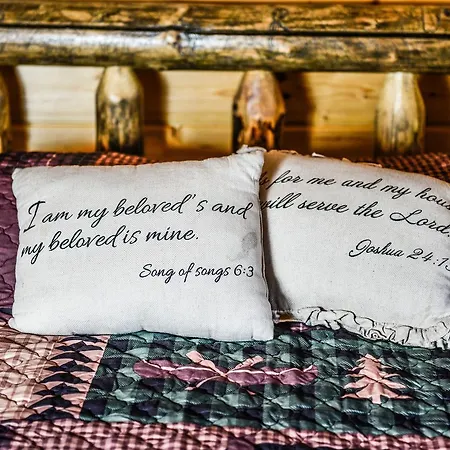 I am my beloved's and
my beloved is mine.
Song of songs 6:3
for me and my
will serve the Lord
Joshua 24: